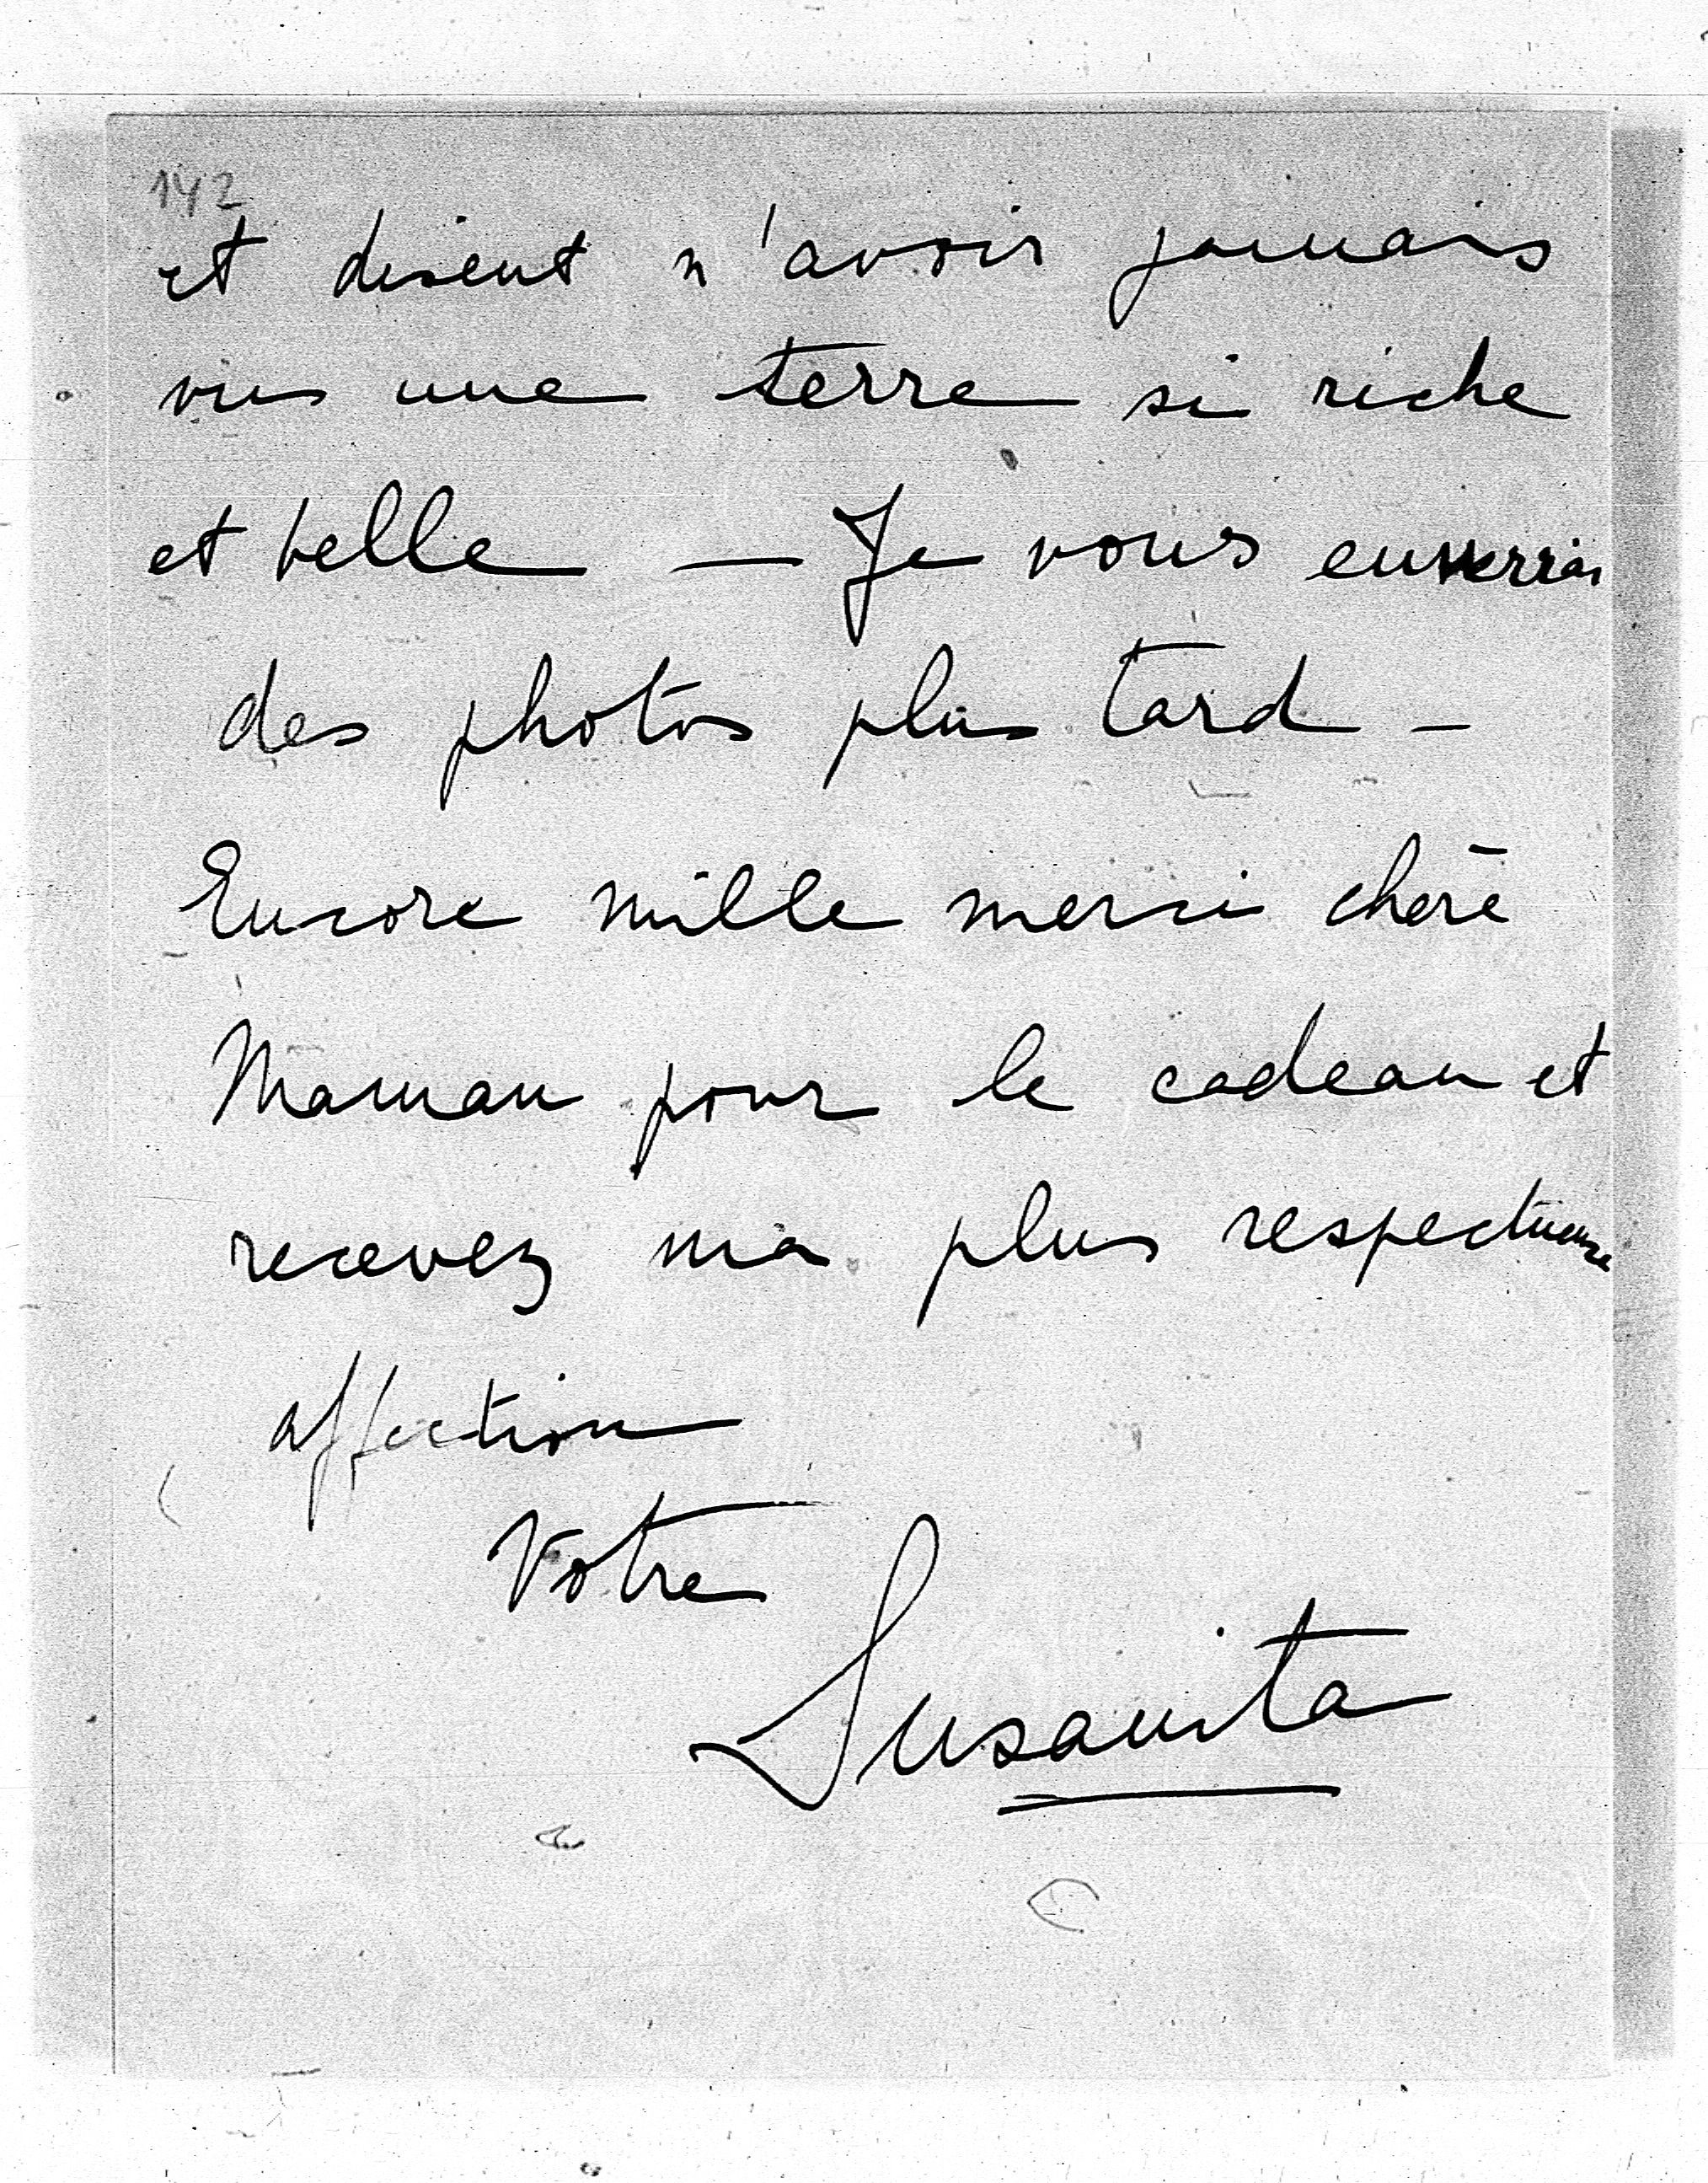 142
et disent n'avoir jamais
vus une terre si riche
et belle — Je vous enverrai
des photos plus tard —
Encore mille merci chère
Maman pour le cadeau et
recevez ma plus respectueuse
affection
Votre
Susanita